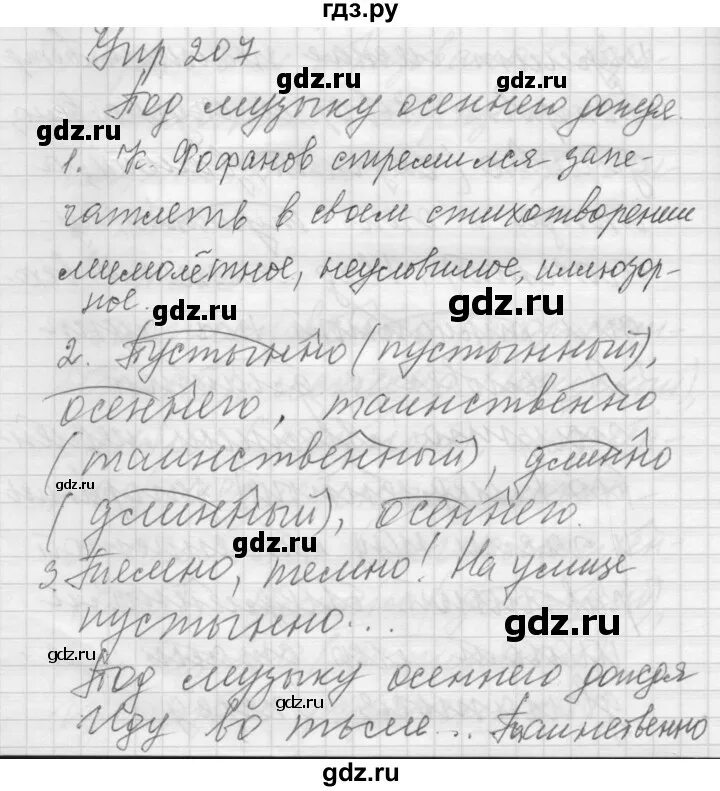 гдз.ру
Упр 207
gdz.ru gdz.ru
Под музыку осеннего дождя.
gdz.ru
1. К. Фофанов стремился запе-
чатлеть в своем стихотворении
мимолётное, неуловимое, иллюзор-
ное.
gdz.ru gdz.ru
2. Пустынно (пустынный),
осеннего, таинственно
(таинственный), длинно
gdz.ru
(длинный), осеннего.
gdz.ru
3. Темно, темно! На улице
пустынно...
gdz.ru
gdz.ru
Под музыку осеннего дождя
gdz.ru
Иду во тьме... Таинственно
gdz.ru